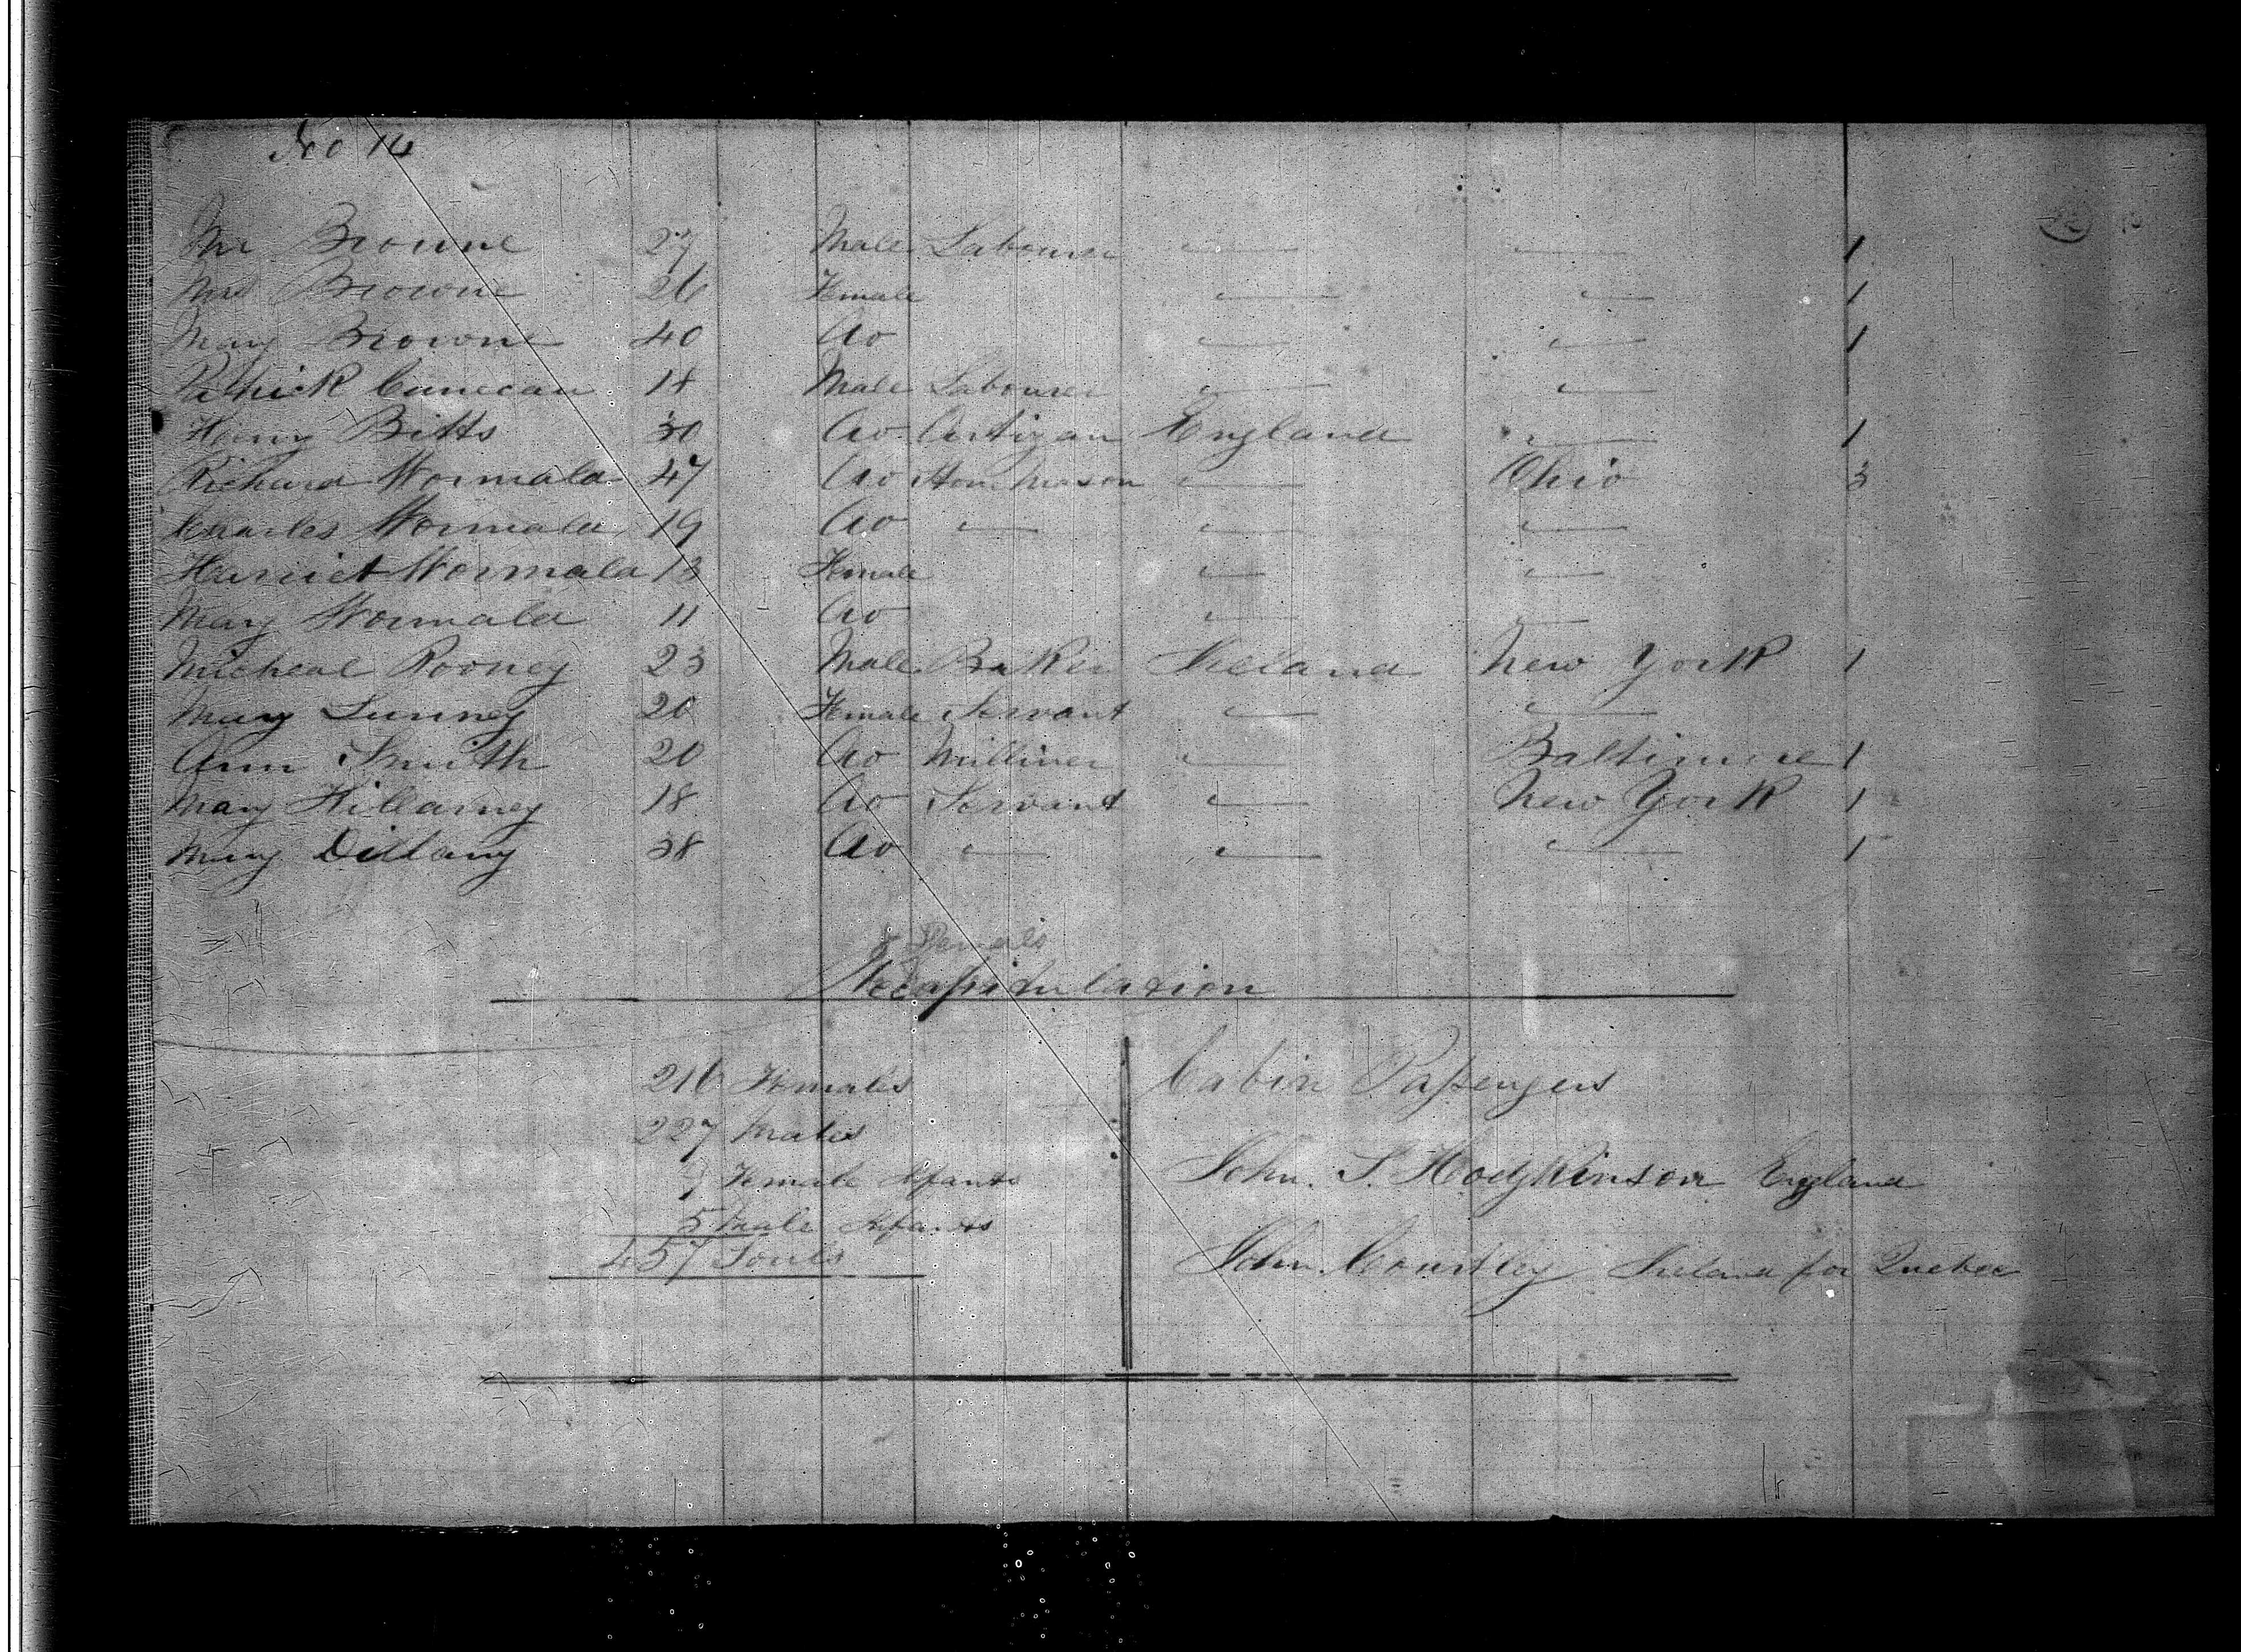 No 14
Mr Browne 27 Male Labourer — — 1
Mrs Browne 26 Female — — 1
Mary Browne 40 Do — — 1
Patrick Cunecan 18 Male Labourer — —
Henry Bitts 30 Do Artizan England — 1
Richard Wormald 47 Do Stone Mason — Ohio 3
Charles Wormald 19 Do — — —
Harriet Wormald 13 Female — —
Mary Wormald 11 Do — —
Micheal Rooney 23 Male Baker Ireland New York 1
Mary Lunney 20 Female Servant — —
Ann Smith 20 Do Milliner — Baltimore 1
Mary Killarney 18 Do Servant — New York 1
Mary Dillany 38 Do — — — 1
Recapitulation
216 Females
227 Males
Female Infants
5 Male Infants
457 Souls
Cabin Passengers
John. S. Hodgkinson England
John. Courtley Ireland for Quebec